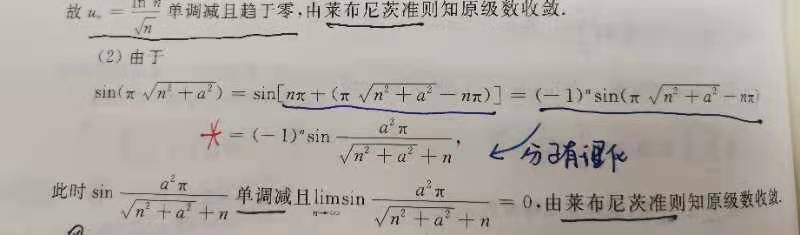 故 uₙ = ln n/√n 单调减且趋于零,由莱布尼茨准则知原级数收敛.
(2) 由于
sin(π √(n²+a²)) = sin[nπ+(π √(n²+a²)−nπ)] = (−1)ⁿsin(π √(n²+a²)−nπ)
* = (−1)ⁿsin a²π/(√(n²+a²)+n),
← 分子有理化
此时 sin a²π/(√(n²+a²)+n) 单调减且 lim_{n→∞} sin a²π/(√(n²+a²)+n) = 0,由莱布尼茨准则知原级数收敛.